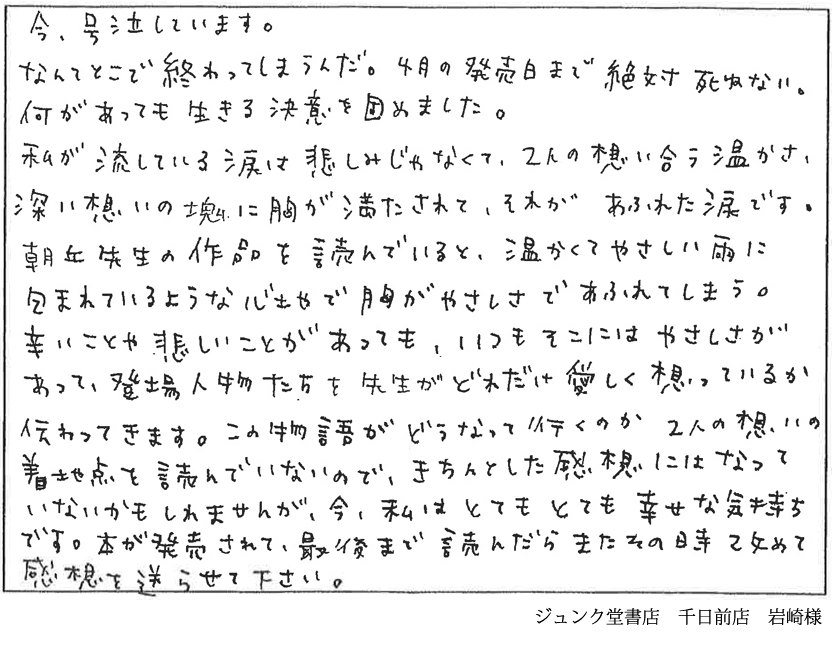 今、号泣しています。
なんてとこで終わってしまうんだ。4月の発売日まで絶対死ねない。
何があっても生きる決意を固めました。
私が流している涙は悲しみじゃなくて、2人の想い合う温かさ、
深い想いの塊に胸が満たされて、それがあふれた涙です。
朝丘先生の作品を読んでいると、温かくてやさしい雨に
包まれているような心地で胸がやさしさであふれてしまう。
辛いことや悲しいことがあっても、いつもそこにはやさしさが
あって、登場人物たちを先生がどれだけ愛しく想っているか
伝わってきます。この物語がどうなって行くのか2人の想いの
着地点を読んでいないので、きちんとした感想にはなって
いないかもしれませんが、今、私はとてもとても幸せな気持ち
です。本が発売されて、最後まで読んだらまたその時改めて
感想を送らせて下さい。
ジュンク堂書店 千日前店 岩崎様